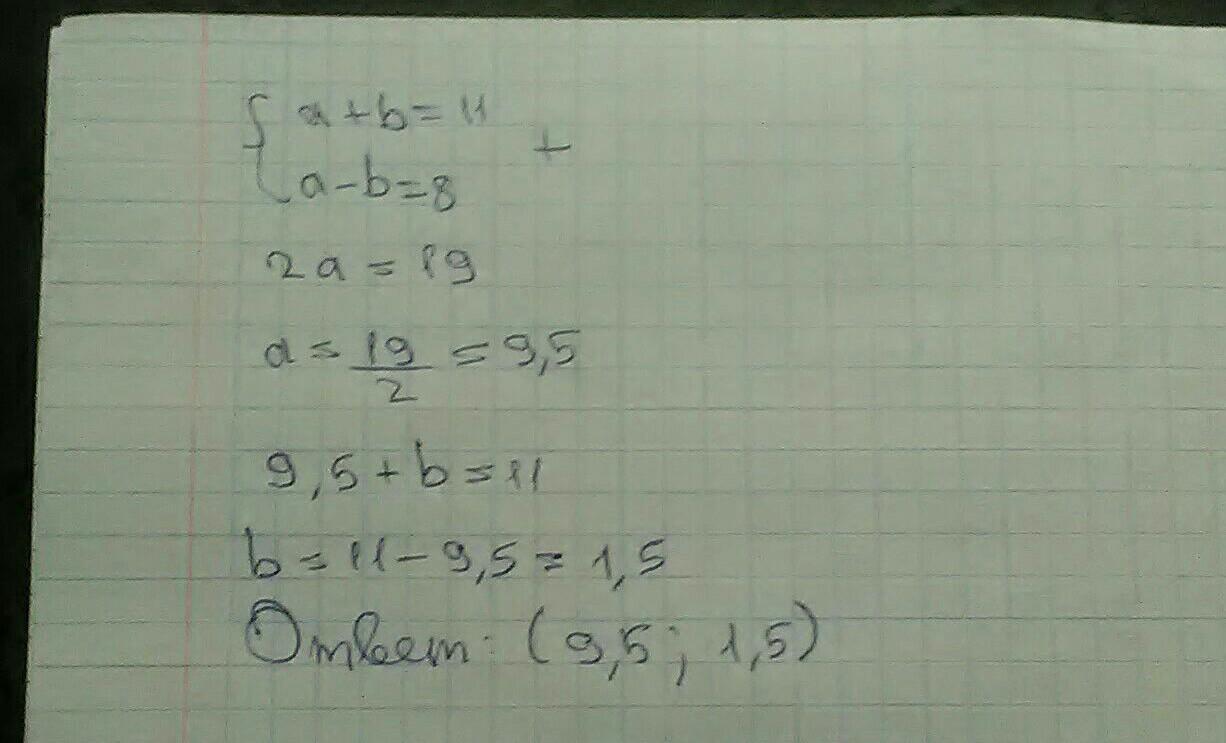 { a + b = 11
a - b = 8 +
2a = 19
a = 19/2 = 9,5
9,5 + b = 11
b = 11 - 9,5 = 1,5
Ответ: (9,5; 1,5)